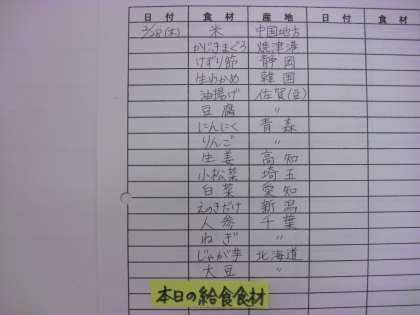 日付 食材 産地 日付 食材
2/28(木) 米 中国地方
かじきまぐろ 焼津港
けずり節 静岡
生わかめ 韓国
油揚げ 佐賀(豆)
豆腐 〃
にんにく 青森
りんご 〃
生姜 高知
小松菜 埼玉
白菜 愛知
えのきだけ 新潟
人参 千葉
ねぎ 〃
じゃが芋 北海道
大豆 〃
本日の給食食材